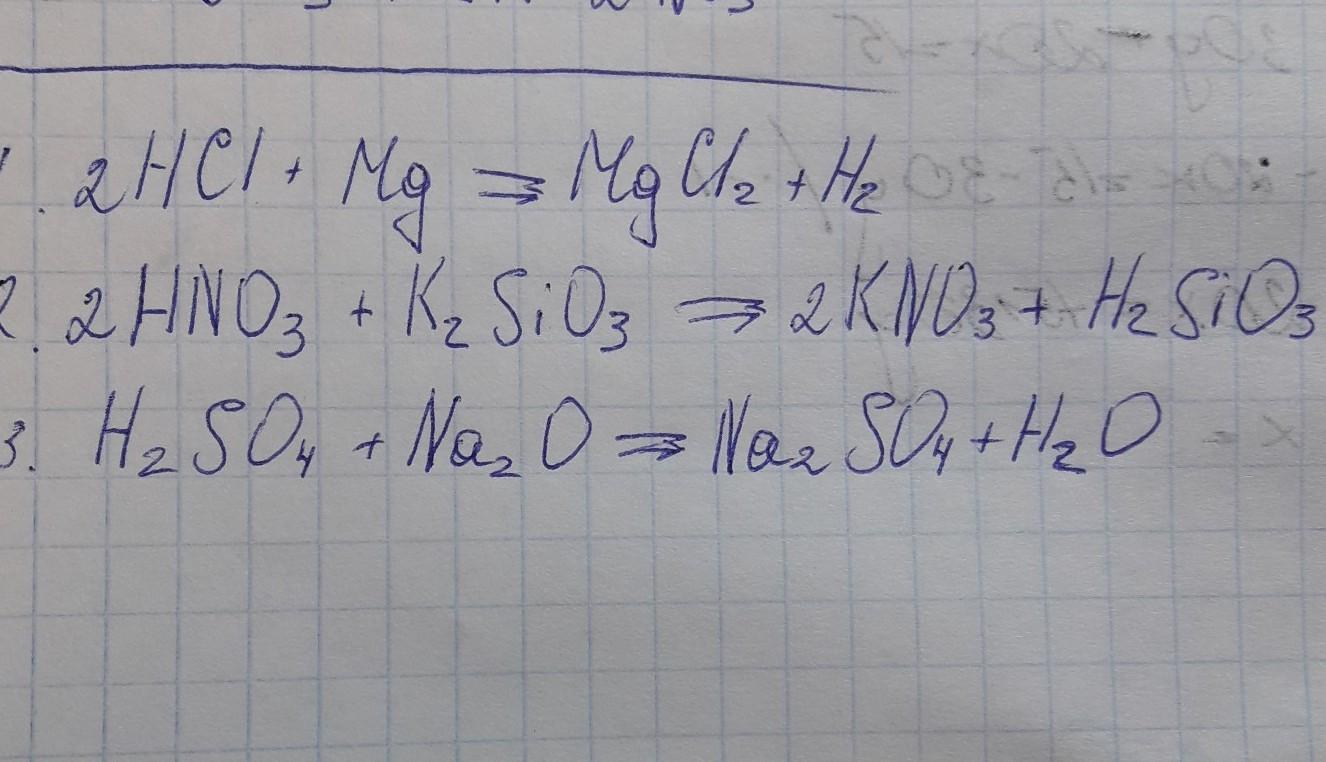 1. 2HCl + Mg ⇒ MgCl₂ + H₂
2. 2HNO₃ + K₂SiO₃ ⇒ 2KNO₃ + H₂SiO₃
3. H₂SO₄ + Na₂O ⇒ Na₂SO₄ + H₂O